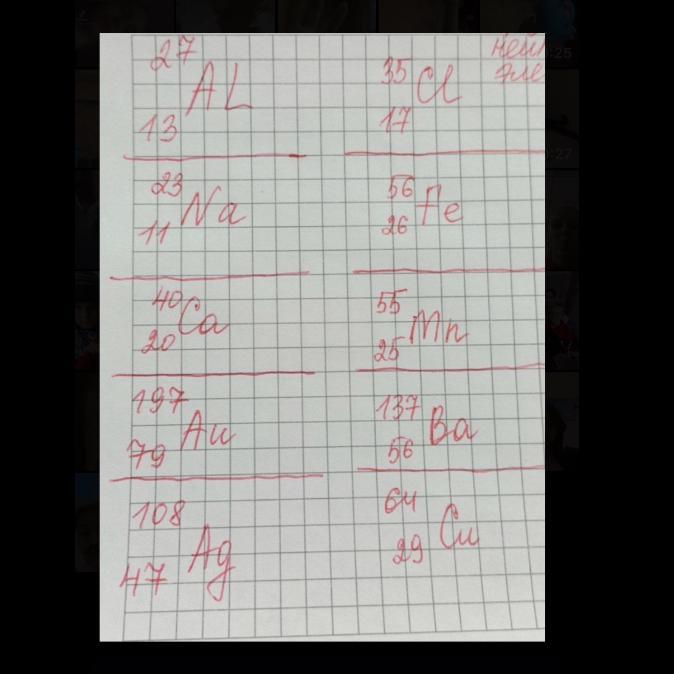 27
AL
13
23
Na
11
40
Ca
20
197
Au
79
108
Ag
47
35
Cl
17
56
Fe
26
55
Mn
25
137
Ba
56
64
Cu
29